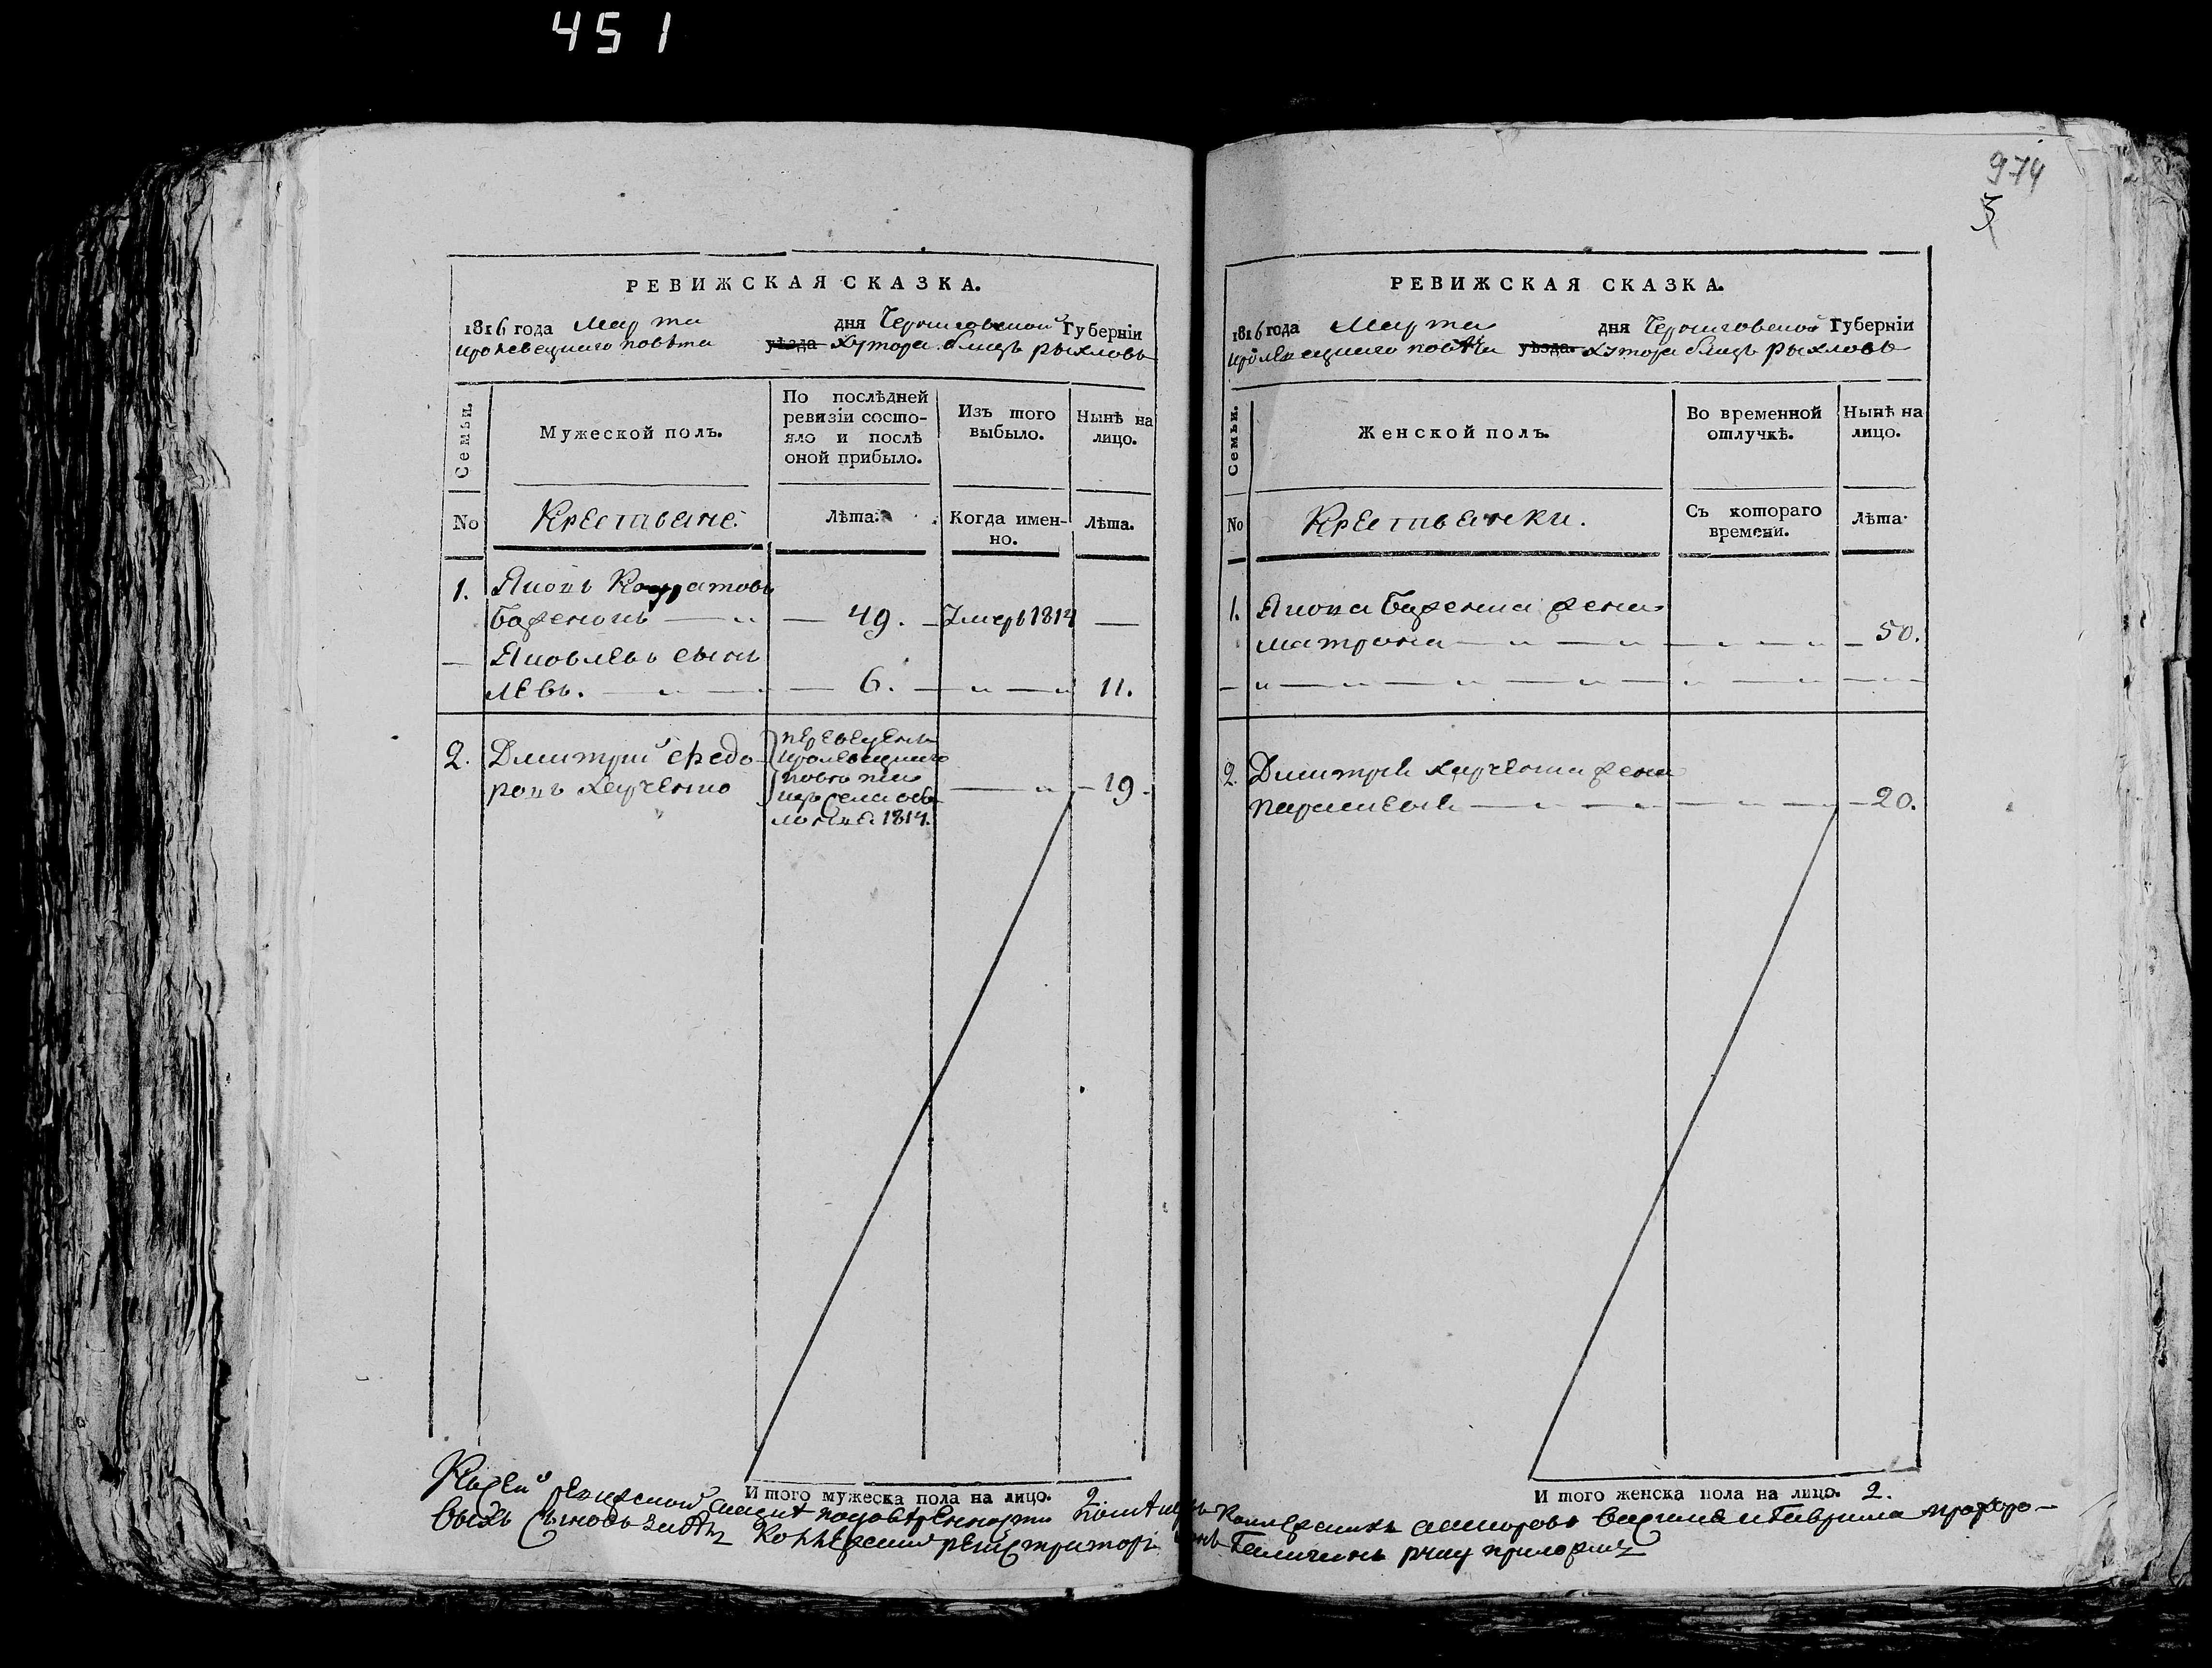 451
974
3
РЕВИЖСКАЯ СКАЗКА.
1816 года Марта дня Черниговской Губерніи
Кролевецкаго повѣта уѣзда хутора близъ Рыхловъ
Семьи.
Мужеской полъ.
По послѣдней ревизіи состояло и послѣ оной прибыло.
Изъ того выбыло.
Нынѣ на лицо.
No
Крестьяне.
Лѣта.
Когда именно.
Лѣта.
1. Яковъ Кондратовъ
— 49. — Умеръ 1814 —
— Яковлевъ сынъ
Левъ. — 6. — 11.
2. Дмитрій Федоровъ Харченко
переведенъ
Кролевецкаго
повѣта
изъ села
1814.
— 19.
Итого мужеска пола на лицо. 2
РЕВИЖСКАЯ СКАЗКА.
1816 года Марта дня Черниговской Губерніи
Кролевецкаго повѣта уѣзда. хутора близъ Рыхловъ
Семьи.
Женской полъ.
Во временной отлучкѣ.
Нынѣ на лицо.
No
Крестьянки.
Съ котораго времени.
Лѣта.
1. Якова жена
Матрона — 50.
2. Дмитрія Харченка жена
Параскевія — 20.
Итого женска пола на лицо. 2.
К сей ревижской сказкѣ по довѣренности
Коллежскій регистраторъ руку приложилъ